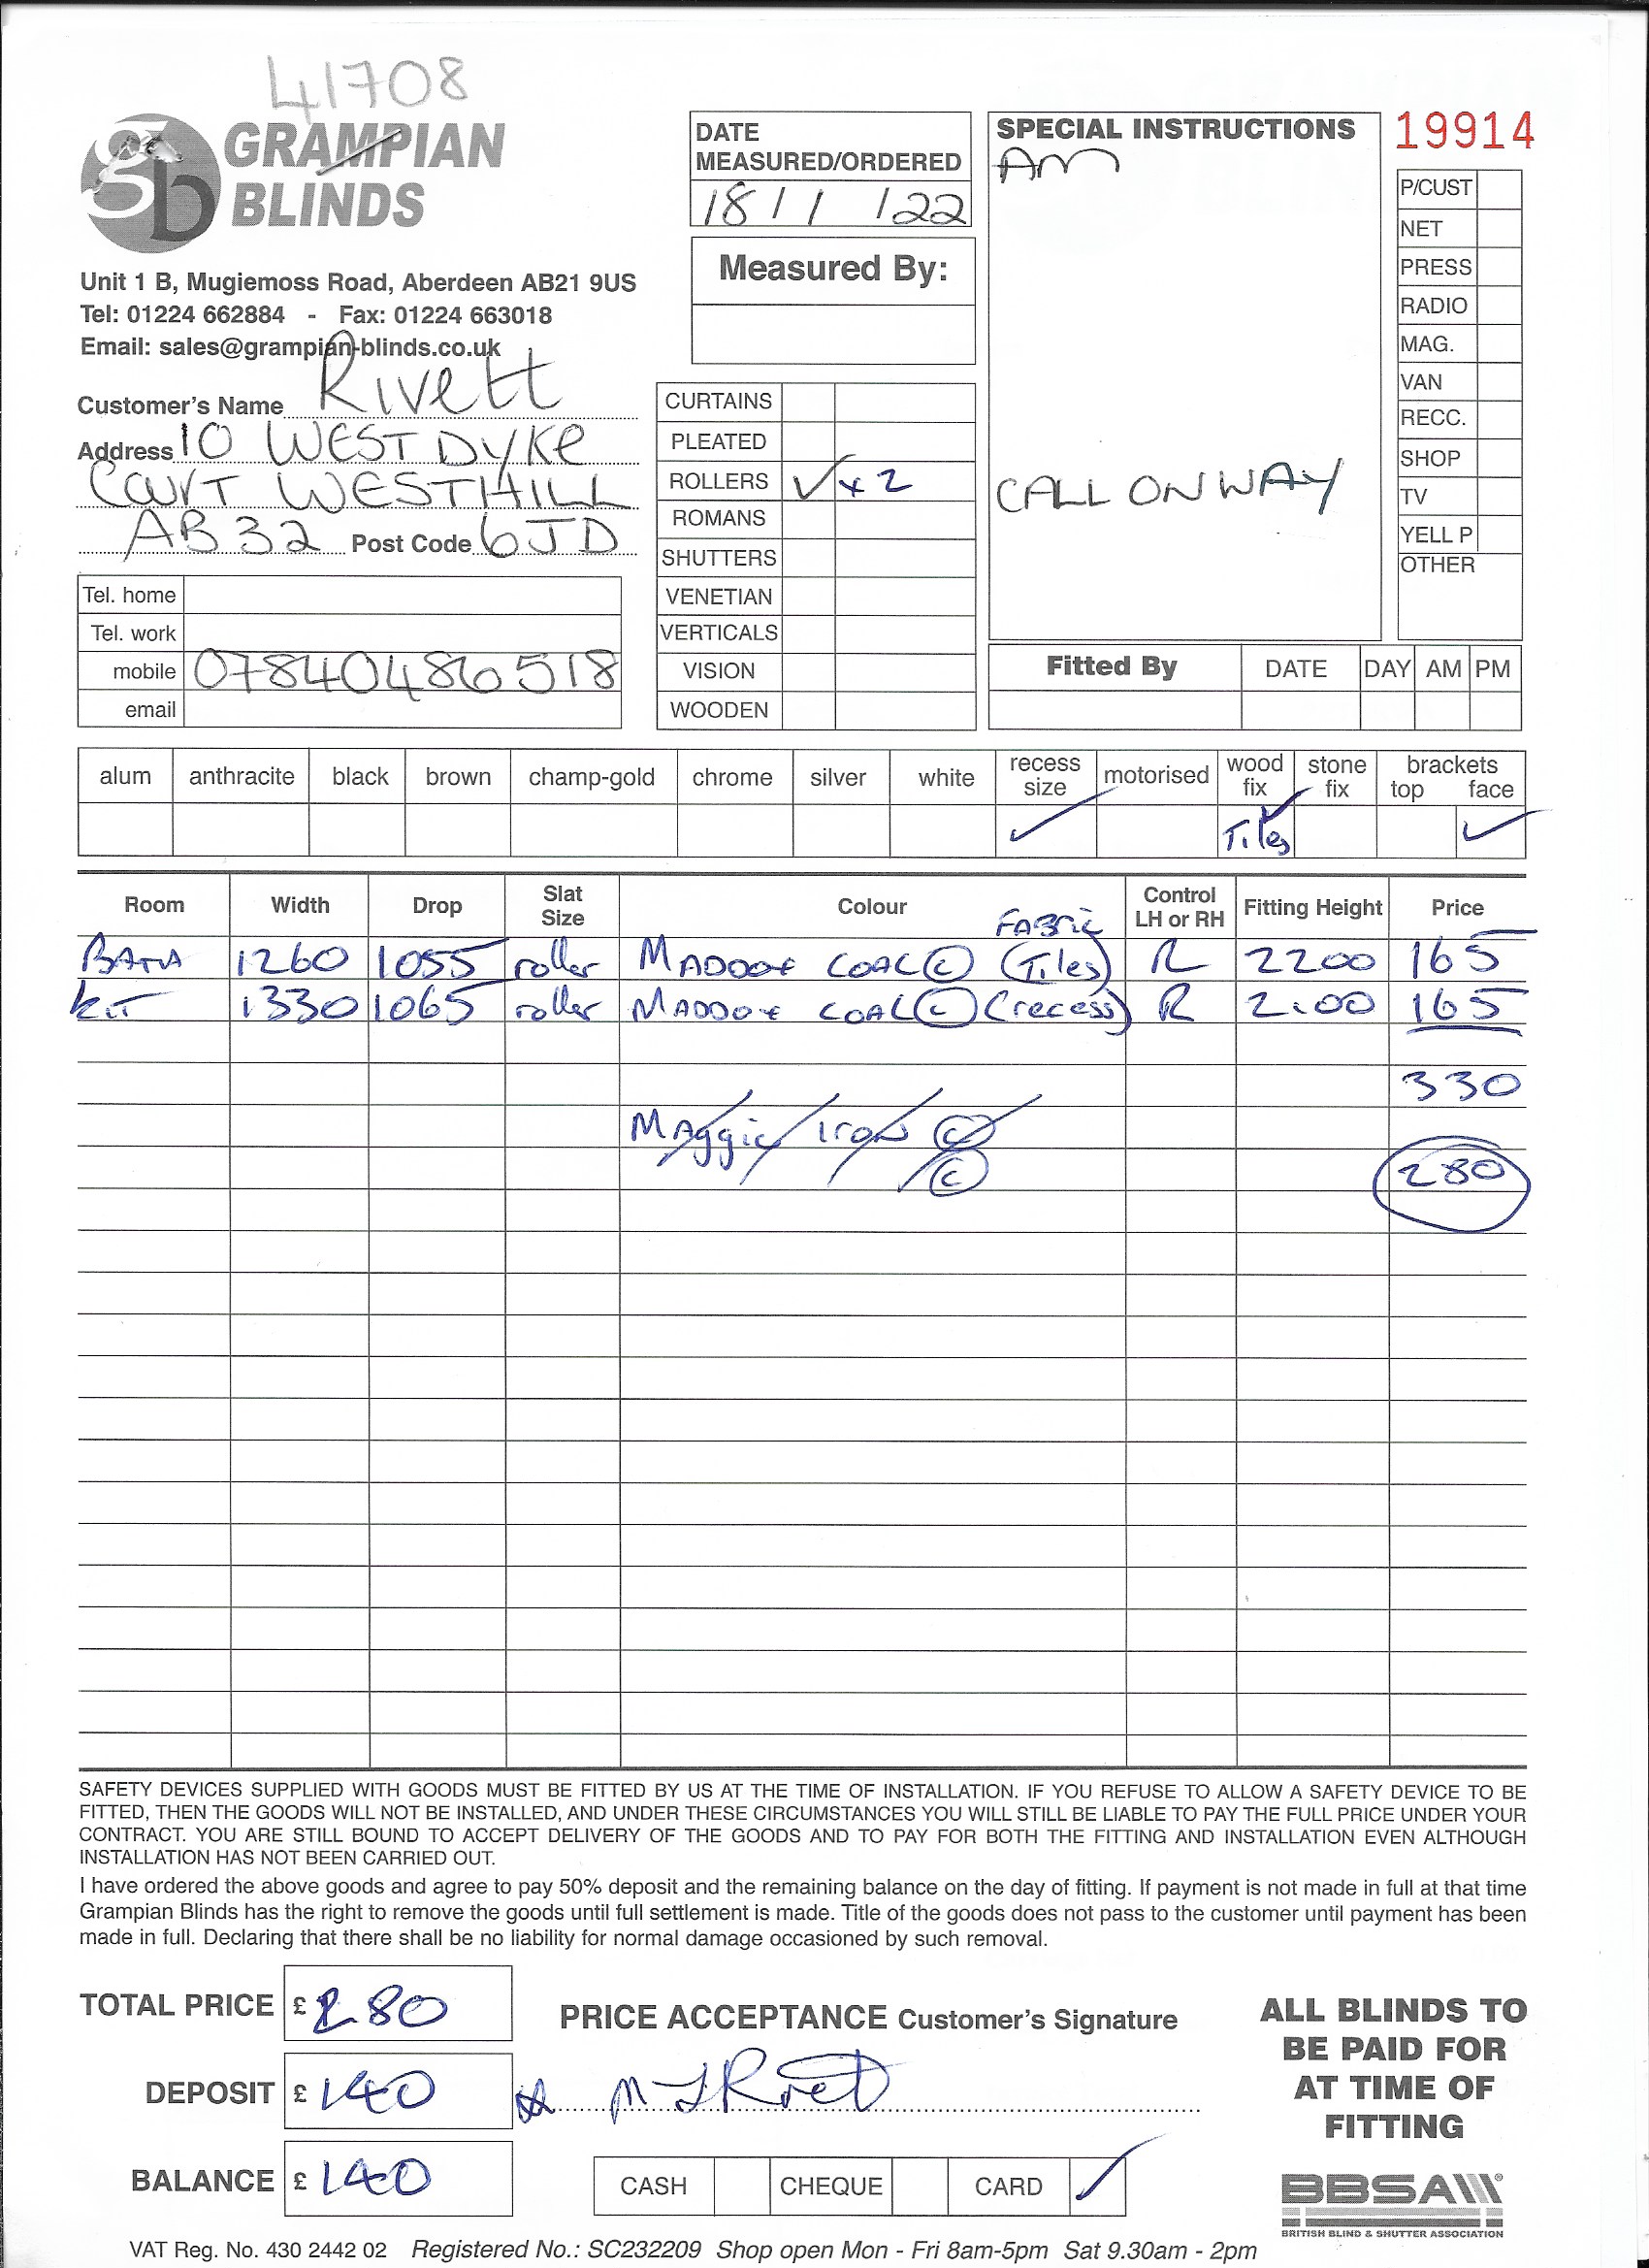 41708
GRAMPIAN
BLINDS
Unit 1 B, Mugiemoss Road, Aberdeen AB21 9US
Tel: 01224 662884 - Fax: 01224 663018
Email: sales@grampian-blinds.co.uk
Customer's Name Rivett
Address 10 WESTDYKE
COURT WESTHILL
AB32 Post Code 6JD
Tel. home
Tel. work
mobile 07840486518
email
DATE
MEASURED/ORDERED
18/1/22
Measured By:
CURTAINS
PLEATED
ROLLERS ✓ x2
ROMANS
SHUTTERS
VENETIAN
VERTICALS
VISION
WOODEN
SPECIAL INSTRUCTIONS
AM
CALL ON WAY
19914
P/CUST
NET
PRESS
RADIO
MAG.
VAN
RECC.
SHOP
TV
YELL P
OTHER
Fitted By DATE DAY AM PM
alum anthracite black brown champ-gold chrome silver white recess size motorised wood fix stone fix brackets top face
✓ Tiles ✓ ✓
Room Width Drop Slat Size Colour Control LH or RH Fitting Height Price
FABRIC
BATH 1260 1055 roller MADDOX COAL © (Tiles) R 2200 165
KIT 1330 1065 roller MADDOX COAL © (recess) R 2100 165
330
Maggie Iron ©
© 280
SAFETY DEVICES SUPPLIED WITH GOODS MUST BE FITTED BY US AT THE TIME OF INSTALLATION. IF YOU REFUSE TO ALLOW A SAFETY DEVICE TO BE
FITTED, THEN THE GOODS WILL NOT BE INSTALLED, AND UNDER THESE CIRCUMSTANCES YOU WILL STILL BE LIABLE TO PAY THE FULL PRICE UNDER YOUR
CONTRACT. YOU ARE STILL BOUND TO ACCEPT DELIVERY OF THE GOODS AND TO PAY FOR BOTH THE FITTING AND INSTALLATION EVEN ALTHOUGH
INSTALLATION HAS NOT BEEN CARRIED OUT.
I have ordered the above goods and agree to pay 50% deposit and the remaining balance on the day of fitting. If payment is not made in full at that time
Grampian Blinds has the right to remove the goods until full settlement is made. Title of the goods does not pass to the customer until payment has been
made in full. Declaring that there shall be no liability for normal damage occasioned by such removal.
TOTAL PRICE £ 280
DEPOSIT £ 140
BALANCE £ 140
PRICE ACCEPTANCE Customer's Signature
CASH CHEQUE CARD ✓
ALL BLINDS TO
BE PAID FOR
AT TIME OF
FITTING
BBSA
BRITISH BLIND & SHUTTER ASSOCIATION
VAT Reg. No. 430 2442 02 Registered No.: SC232209 Shop open Mon - Fri 8am-5pm Sat 9.30am - 2pm